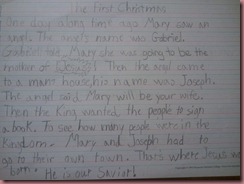 The first Christmas
One day a long time ago Mary saw an
angel. The angel's name was Gabriel.
Gabriel told Mary she was going to be the
mother of Jesus! Then the angel came
to a man's house, his name was Joseph.
The angel said, Mary will be your wife.
Then the King wanted the people to sign
a book. To see how many people were in the
Kingdom. Mary and Joseph had to
go to their own town. That's where Jesus was
born. He is our Savior!